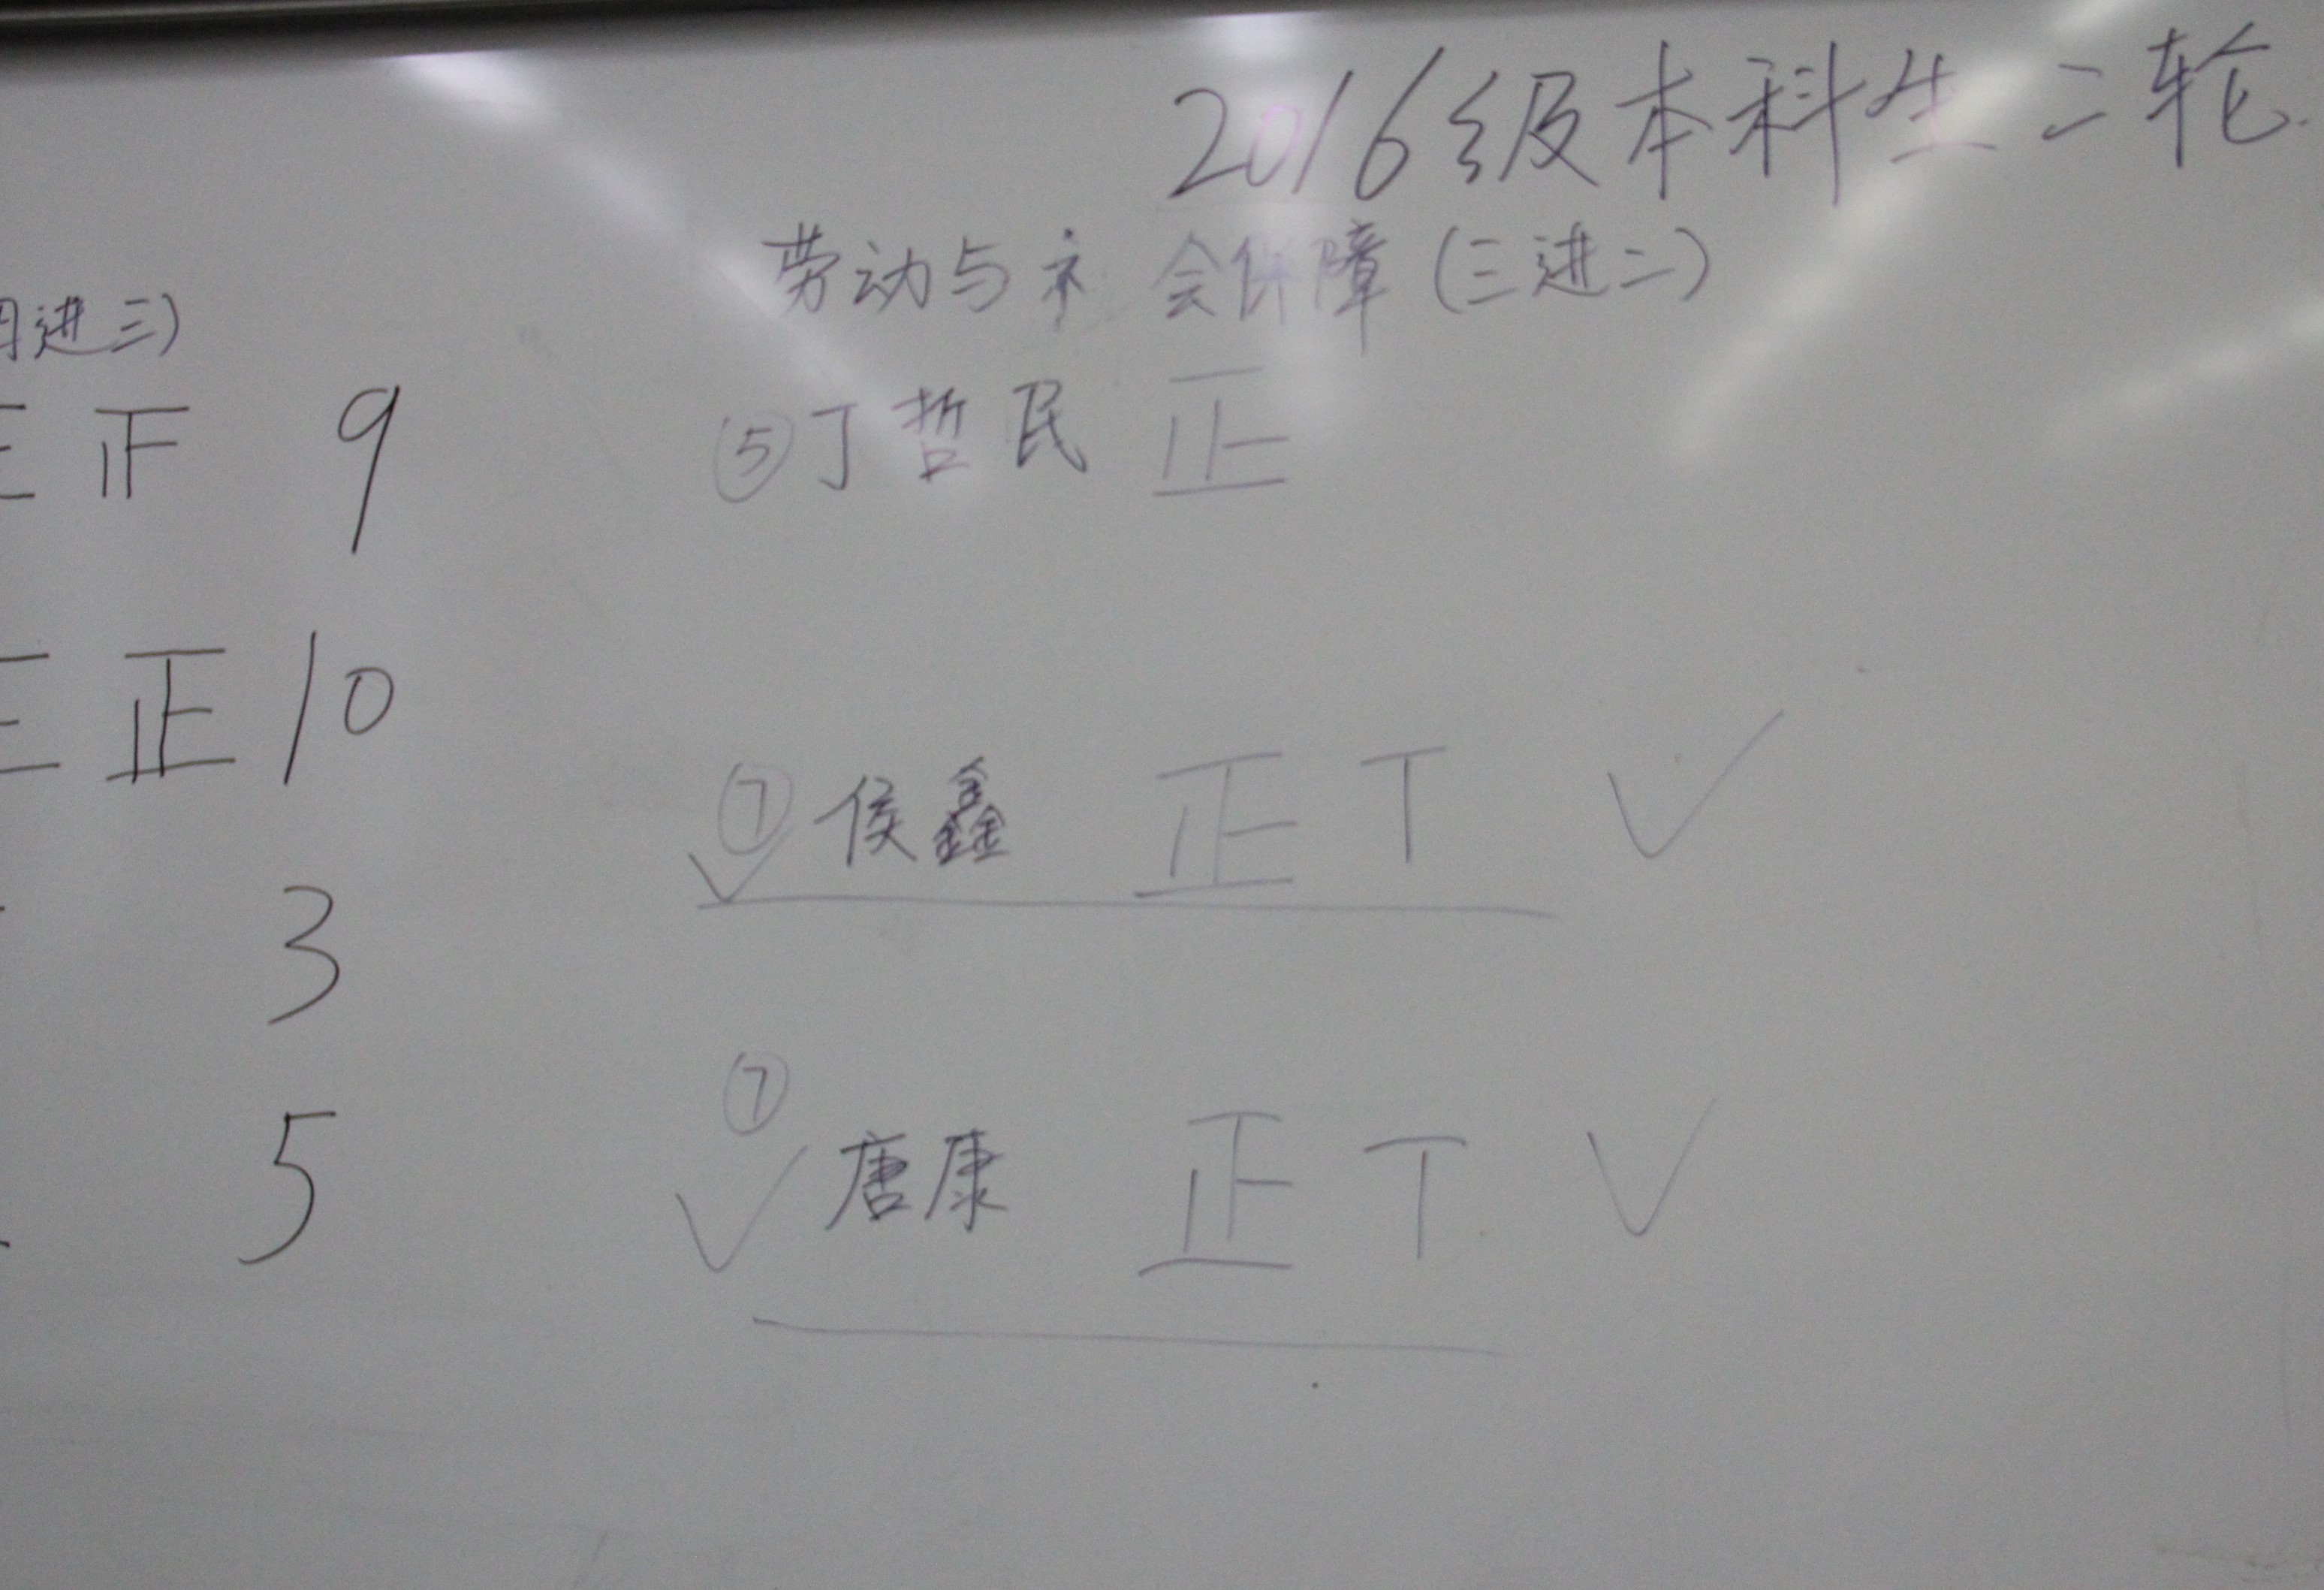 2016级本科生二轮
劳动与社会保障(三进二)
⑤丁哲民 正
⑦侯鑫 正 T ✓
✓
⑦
✓唐康 正 T ✓
进三)
正 9
正 10
3
5